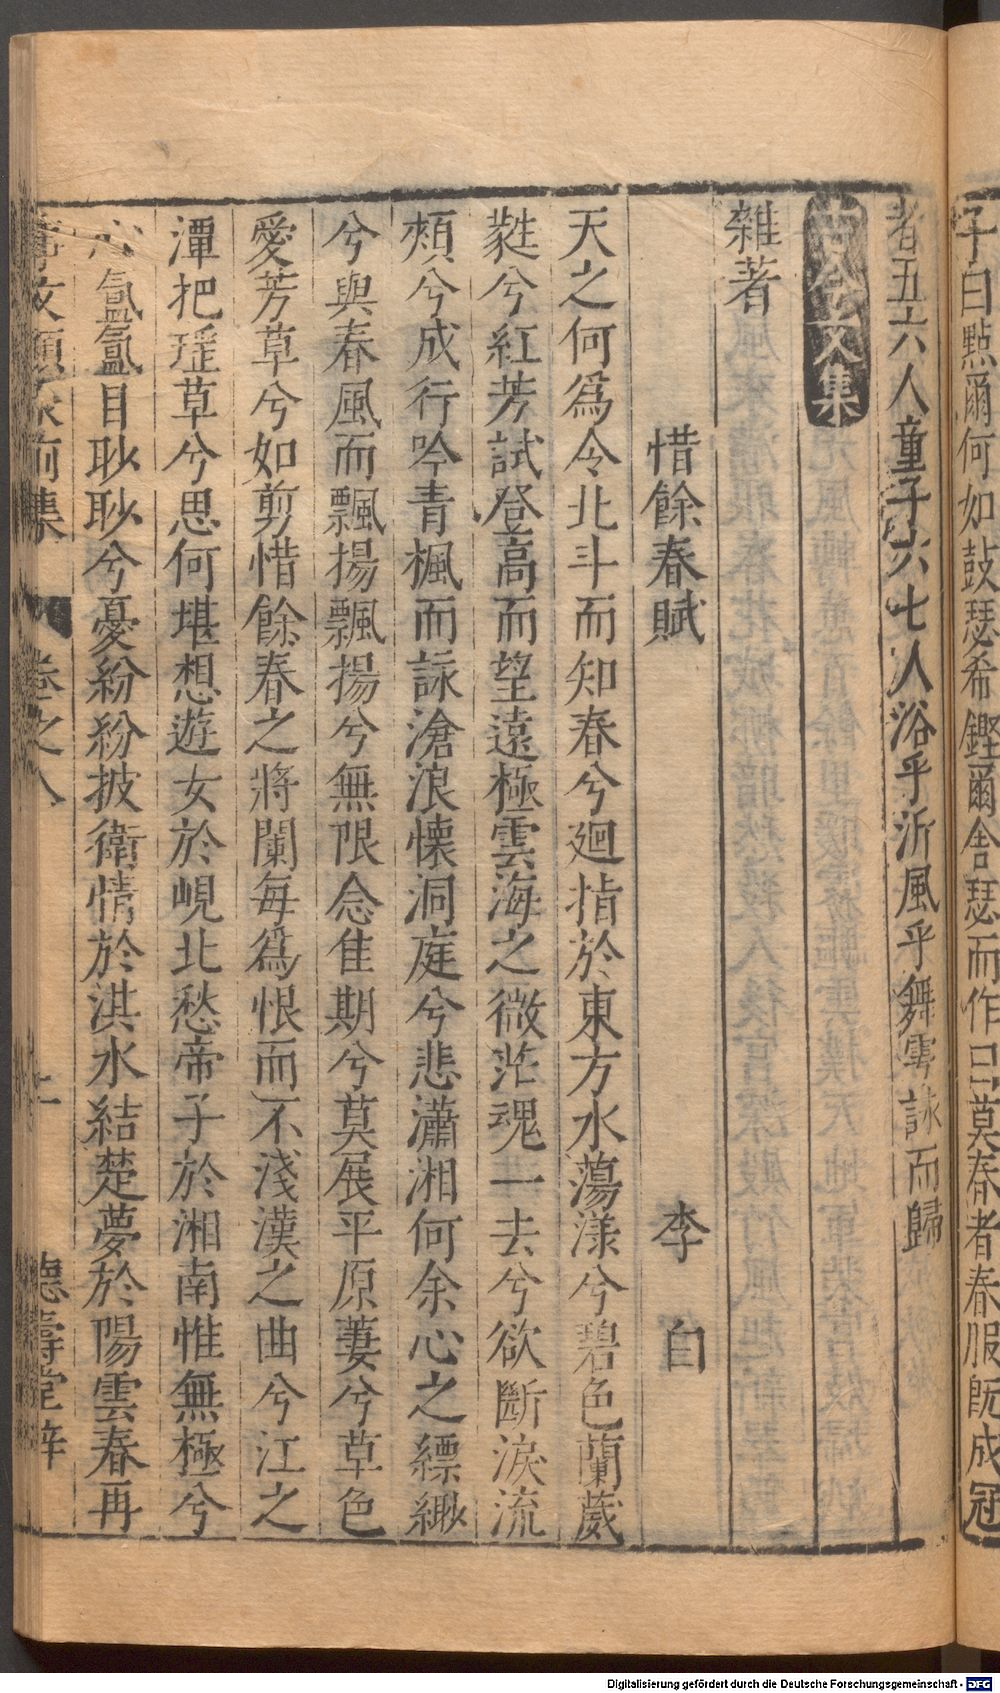 子曰點爾何如鼓瑟希鏗爾舍瑟而作曰莫春者春服既成冠
者五六人童子六七人浴乎沂風乎舞雩詠而歸
古今文集
雜著
惜餘春賦 李白
天之何爲令北斗而知春兮廻指於東方水蕩漾兮碧色蘭葳
蕤兮紅芳試登高而望遠極雲海之微茫魂一去兮欲斷淚流
頰兮成行吟青楓而詠滄浪懷洞庭兮悲瀟湘何余心之縹緲
兮與春風而飄揚飄揚兮無限念佳期兮莫展平原萋兮草色
愛芳草兮如剪惜餘春之將闌每爲恨而不淺漢之曲兮江之
潭把瑶草兮思何堪想遊女於峴北愁帝子於湘南惟無極兮
心氳氳目眇眇兮憂紛紛披衛情於淇水結楚夢於陽雲春再
事文類聚前集 卷之八 德壽堂梓
Digitalisierung gefördert durch die Deutsche Forschungsgemeinschaft - DFG